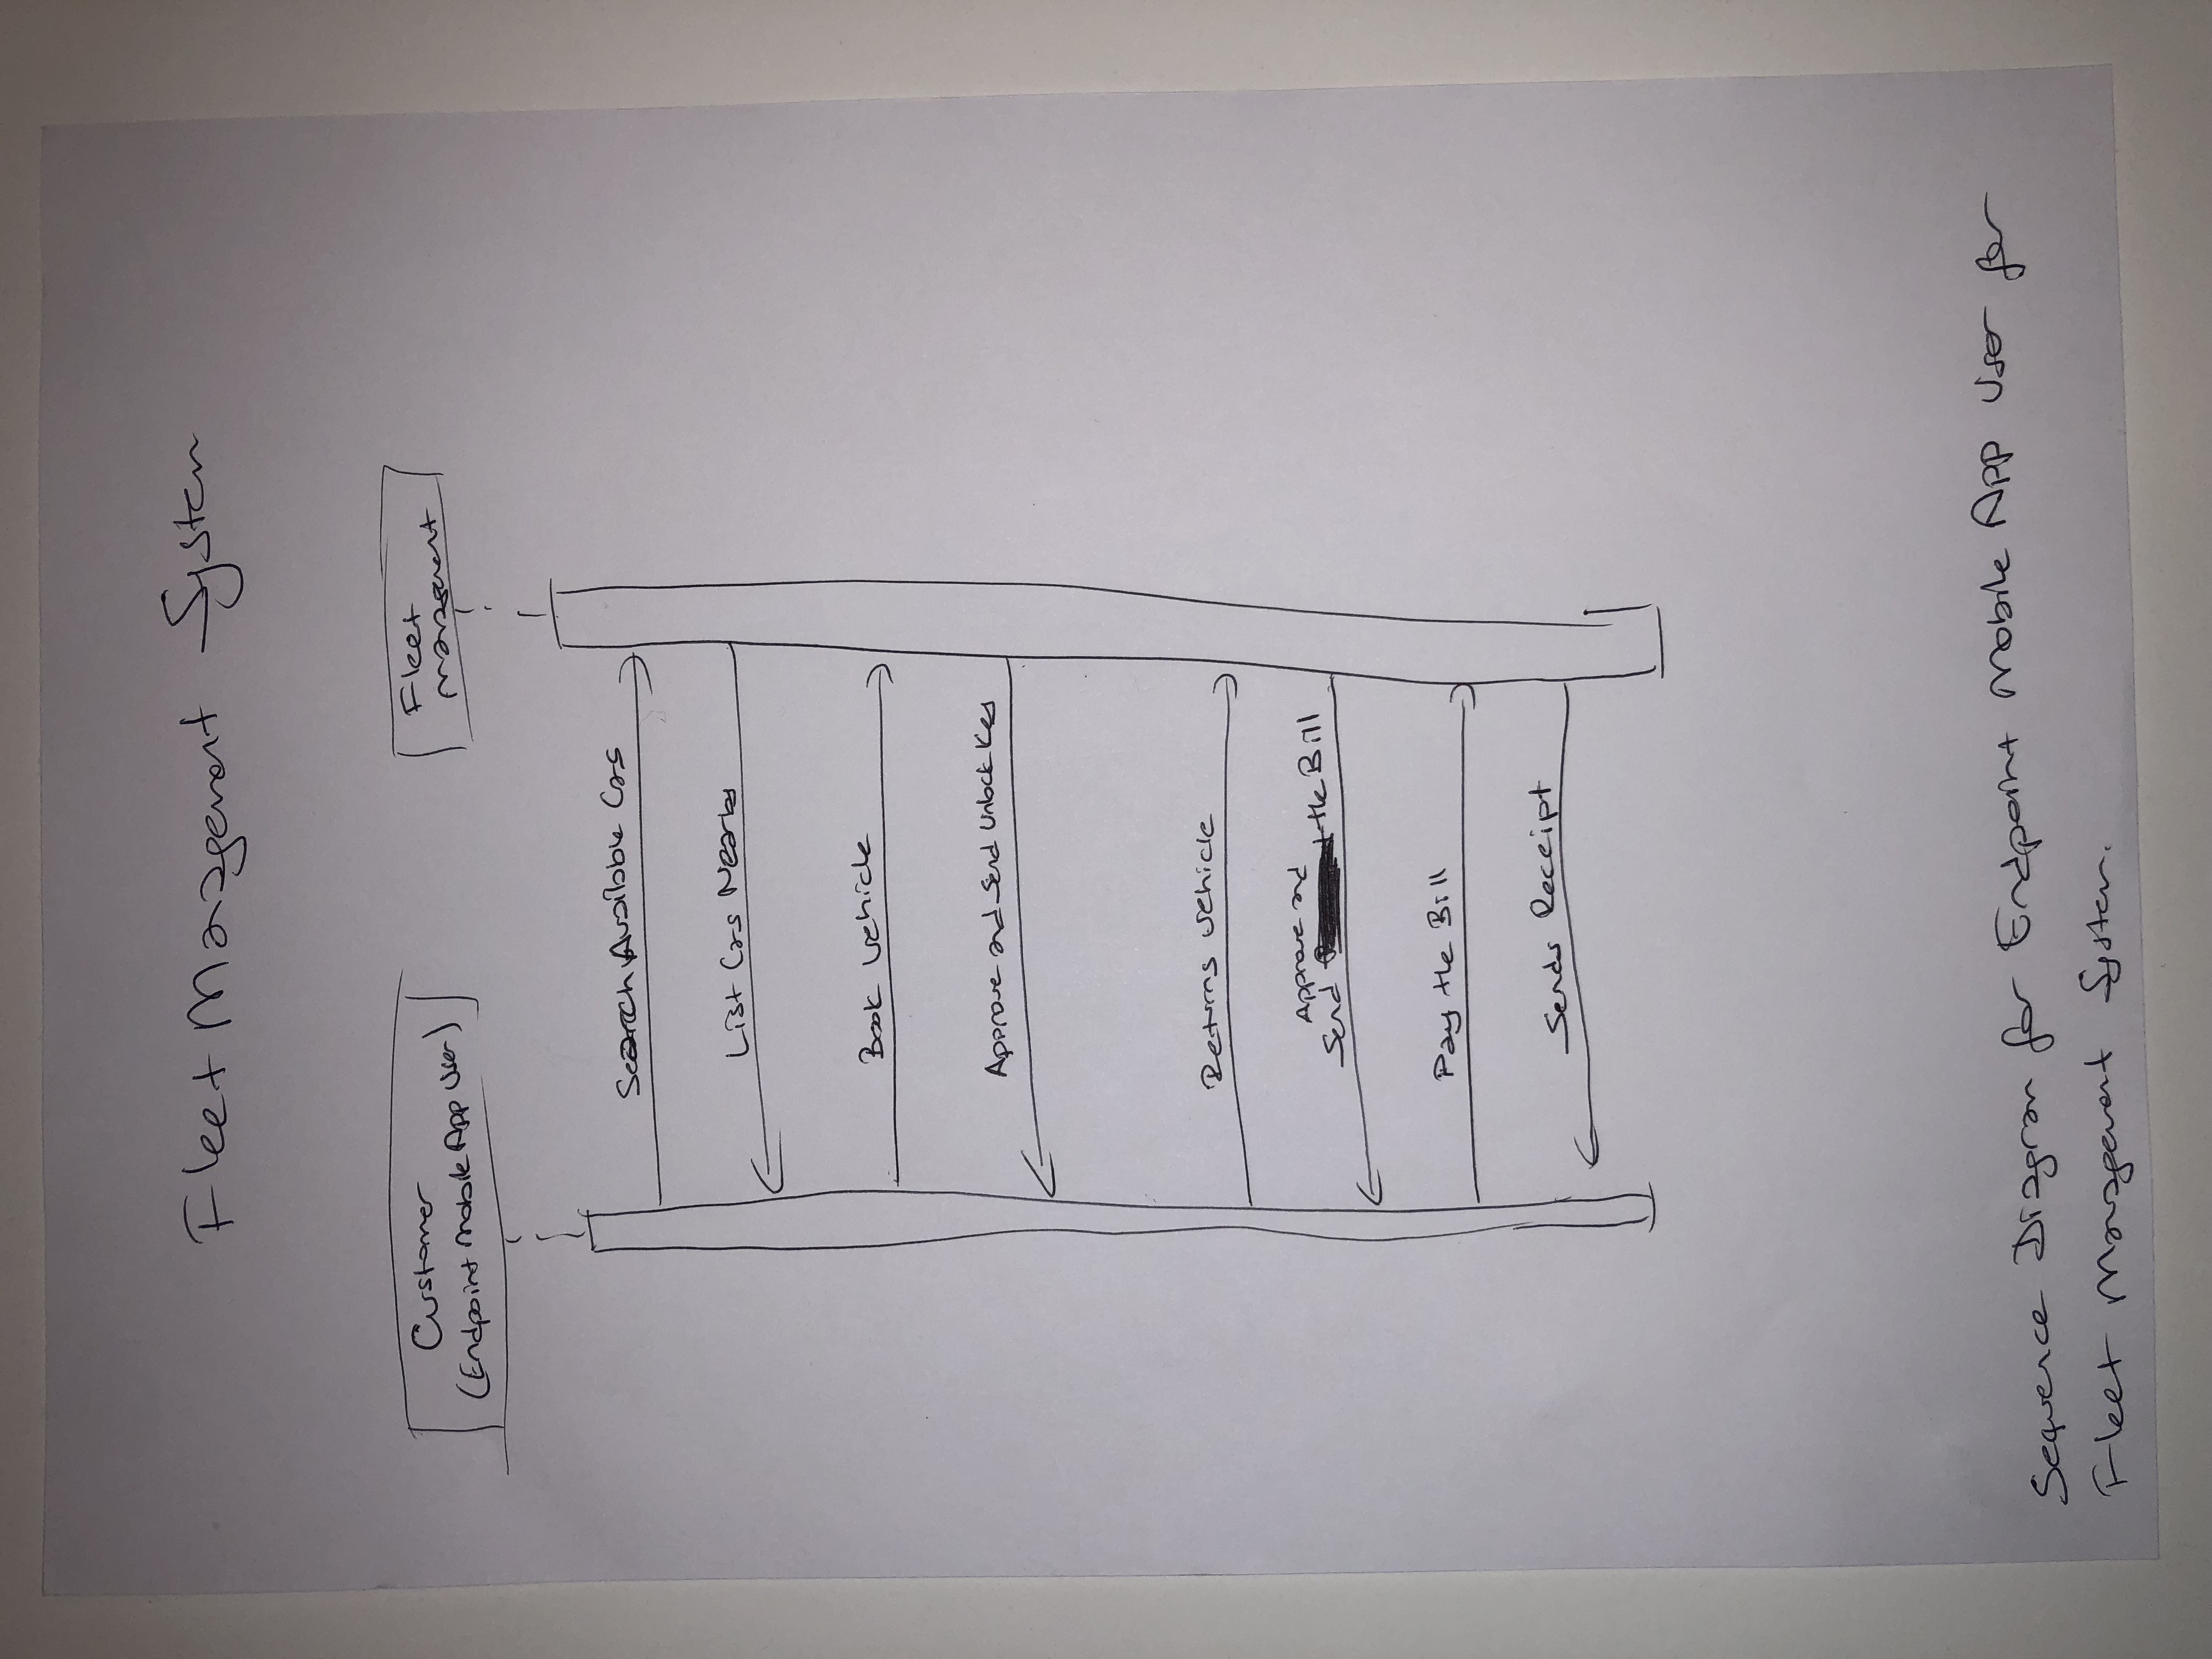 Fleet Management System
Customer
(Endpoint mobile App user)
Fleet
management
Search Available Cars
List Cars Nearby
Book Vehicle
Approve and send unlock key
Returns vehicle
Approve and
Send the Bill
Pay the Bill
Sends Receipt
Sequence Diagram for Endpoint mobile App user for
Fleet Management System.